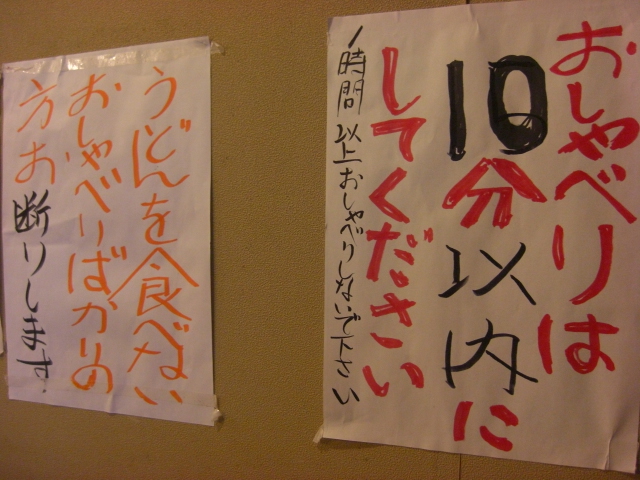 おしゃべりは
10分以内に
してください
1時間以上おしゃべりしないで下さい
うどんを食べない
おしゃべりばかりの
方お断りします。